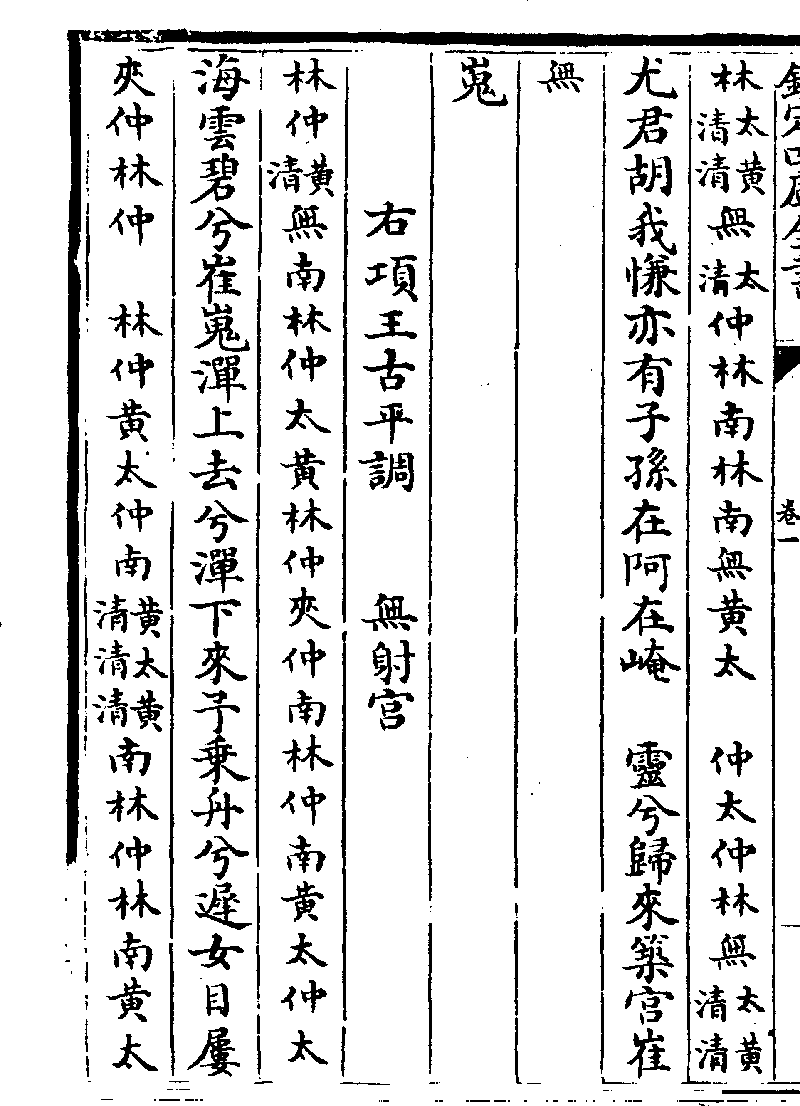 欽定四庫全書 卷一
林太清黄清無太清仲林南林南無黄太　仲太仲林無太清黄清
尤君胡我慊亦有子孫在阿在崦　靈兮歸來築宫崔
無
嵬
右項王古平調　無射宫
林仲黄清無南林仲太黄林仲夾仲南林仲南黄太仲太
海雲碧兮崔嵬潬上去兮潬下來予乗舟兮遲女目屢
夾仲林仲　林仲黄太仲南黄清太清黄清南林仲林南黄太